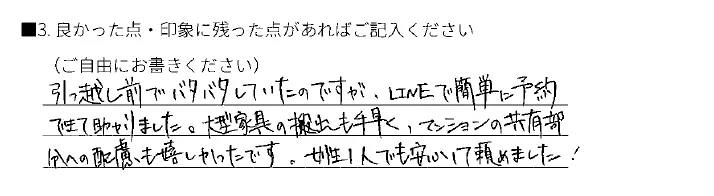 ■3. 良かった点・印象に残った点があればご記入ください
（ご自由にお書きください）
引っ越し前でバタバタしていたのですが、LINEで簡単に予約
できて助かりました。大型家具の搬出も手早く、マンションの共有部
分への配慮も嬉しかったです。女性1人でも安心して頼めました！